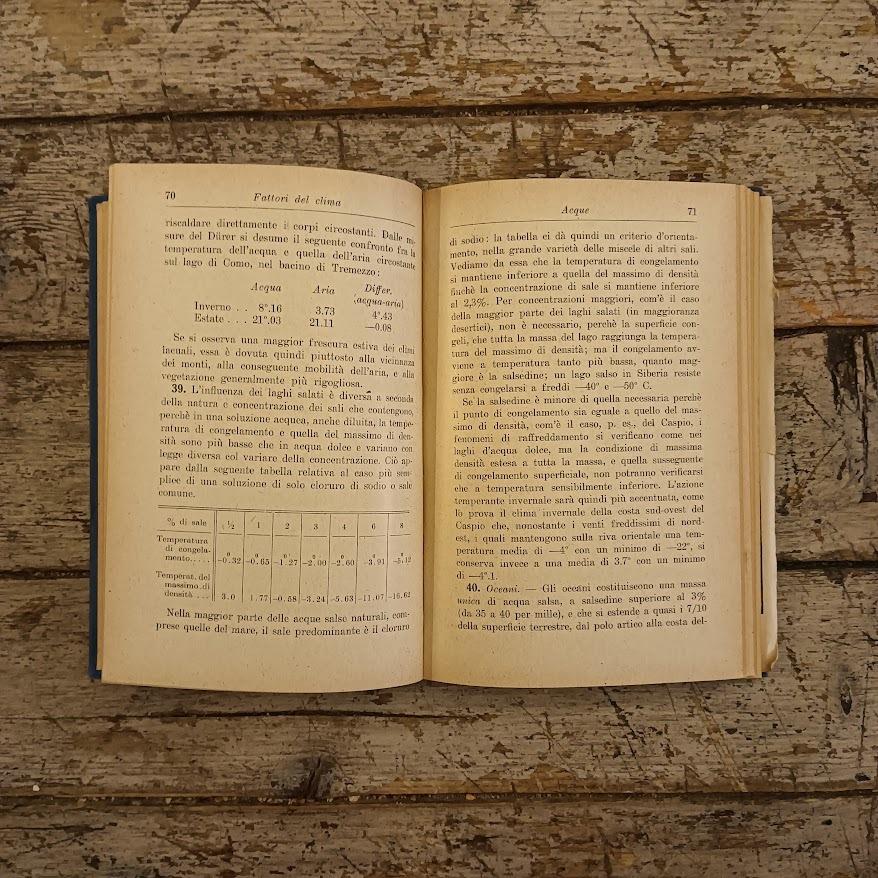 70 Fattori del clima
riscaldare direttamente i corpi circostanti. Dalle mi-
sure del Dürer si desume il seguente confronto fra la
temperatura dell'acqua e quella dell'aria circostante
sul lago di Como, nel bacino di Tremezzo:
Acqua Aria Differ.
(acqua-aria)
Inverno . . 8°.16 3.73 4°.43
Estate . . . 21°.03 21.11 —0.08
Se si osserva una maggior frescura estiva dei climi
lacuali, essa è dovuta quindi piuttosto alla vicinanza
dei monti, alla conseguente mobilità dell'aria, e alla
vegetazione generalmente più rigogliosa.
39. L'influenza dei laghi salati è diversa a seconda
della natura e concentrazione dei sali che contengono,
perchè in una soluzione acquea, anche diluita, la tempe-
ratura di congelamento e quella del massimo di den-
sità sono più basse che in acqua dolce e variano con
legge diversa col variare della concentrazione. Ciò ap-
pare dalla seguente tabella relativa al caso più sem-
plice di una soluzione di solo cloruro di sodio o sale
comune.
% di sale ½ 1 2 3 4 6 8
Temperatura
di congela-
mento..... —0.32 —0.65 —1.27 —2.00 —2.60 —3.91 —5.12
Temperat. del
massimo di
densità ... 3.0 1.77 —0.58 —3.24 —5.63 —11.07 —16.62
Nella maggior parte delle acque salse naturali, com-
prese quelle del mare, il sale predominante è il cloruro
Acque 71
di sodio: la tabella ci dà quindi un criterio d'orienta-
mento, nella grande varietà delle miscele di altri sali.
Vediamo da essa che la temperatura di congelamento
si mantiene inferiore a quella del massimo di densità
finchè la concentrazione di sale si mantiene inferiore
al 2,3%. Per concentrazioni maggiori, com'è il caso
della maggior parte dei laghi salati (in maggioranza
desertici), non è necessario, perchè la superficie con-
geli, che tutta la massa del lago raggiunga la tempera-
tura del massimo di densità; ma il congelamento av-
viene a temperatura tanto più bassa, quanto mag-
giore è la salsedine; un lago salso in Siberia resiste
senza congelarsi a freddi —40° e —50° C.
Se la salsedine è minore di quella necessaria perchè
il punto di congelamento sia eguale a quello del mas-
simo di densità, com'è il caso, p. es., del Caspio, i
fenomeni di raffreddamento si verificano come nei
laghi d'acqua dolce, ma la condizione di massima
densità estesa a tutta la massa, e quella susseguente
di congelamento superficiale, non potranno verificarsi
che a temperatura sensibilmente inferiore. L'azione
temperante invernale sarà quindi più accentuata, come
lo prova il clima invernale della costa sud-ovest del
Caspio che, nonostante i venti freddissimi di nord-
est, i quali mantengono sulla riva orientale una tem-
peratura media di —4° con un minimo di —22°, si
conserva invece a una media di 3.7° con un minimo
di —4°.1.
40. Oceani. — Gli oceani costituiscono una massa
unica di acqua salsa, a salsedine superiore al 3%
(da 35 a 40 per mille), e che si estende a quasi i 7/10
della superficie terrestre, dal polo artico alla costa del-